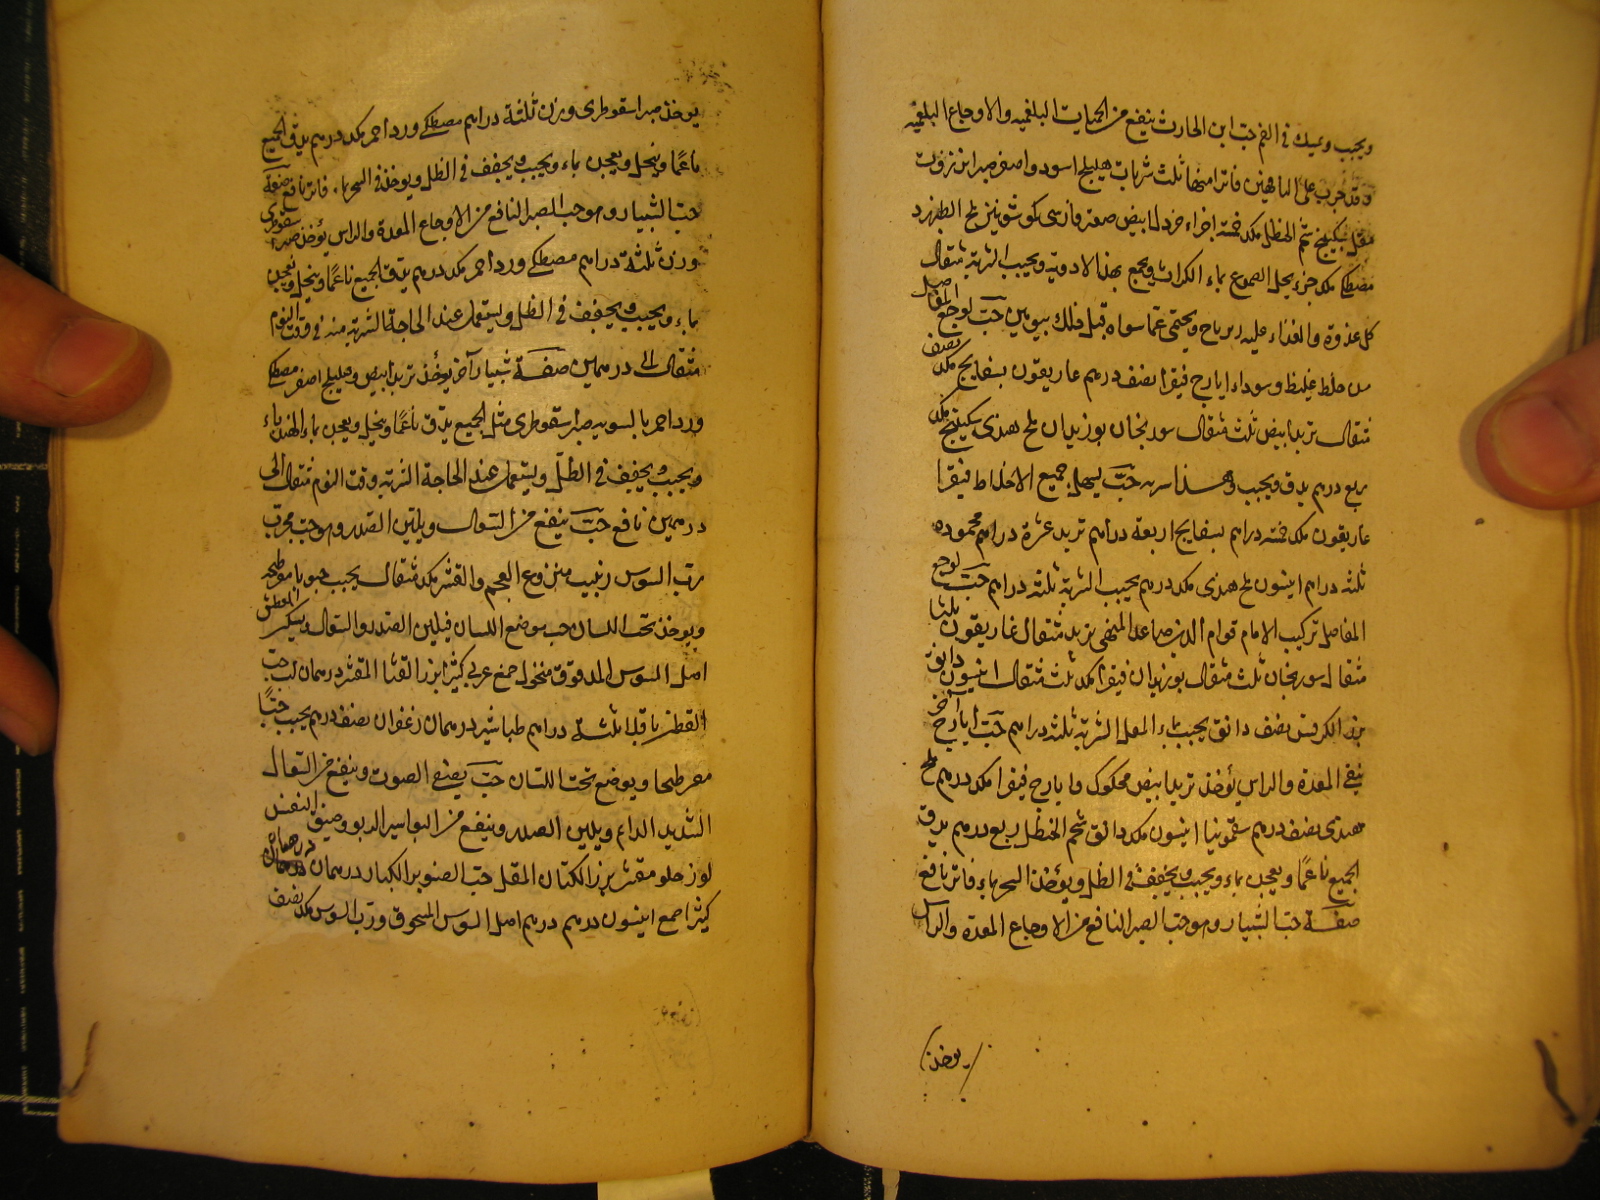 ويحبب ويمسك في الفم حب ابن الحارث ينفع من الحميات البلغميه والاوجاع البلغميه
وقد جرب على الماهين فاترا منها ثلث شربات هليلج اسود واصفر صبر انزروت
مقل سكبينج شحم الحنظل مكد خمسة اجزاء خردل ابيض صعتر فارسى شونيز ملح الطبرزد
مصطكى مكد جزء يحل الصموغ بماء الكراث ويجمع بهذا الادوية ويحبب الشربة مثقال
كل غدوة والغذاء عليه زيرباج ويحتمى عما سواه قبل ذلك بيومين حب لوجع المفاصل
من خلط غليظ وسوداء ايارج فيقرا نصف درهم غاريقون بسفايج مكد نصف
مثقال تربد ابيض ثلث مثقال سورنجان بوزيدان ملح هندى سكبينج مكد
ربع درهم يدق ويحبب وهذا شربه حب يسهل جميع الاخلاط فيقرا
غاريقون مكد خمسه دراهم بسفايج اربعة دراهم تربد عشرة دراهم محموده
ثلثه دراهم انيسون ملح هندى مكد درهم يحبب الشربة ثلثه دراهم حب لوجع
المفاصل تركيب الامام قوام الدين صاعد المهنى تربد مثقال غاريقون ثلثا
مثقال سورنجان ثلث مثقال بوزيدان فيقرا مكد ثلث مثقال انيسون دانق
بزر الكرفس نصف دانق يحبب بماء المقل الشربة ثلثه دراهم حب ايارج آخر
ينقى المعدة والراس يؤخذ تربد ابيض محكوك وايارج فيقرا مكد درهم ملح
هندى نصف درهم سقمونيا انيسون مكد دانق شحم الحنظل ربع درهم يدق
الجميع ناعمًا ويعجن بماء ويحبب ويجفف في الظل ويؤخذ في السحر بماء فاتر نافع
صفة حب الشبيار وهو حب الصبر النافع من الاوجاع المعدة والراس
يوخذ
يوخذ صبر اسقوطرى وزن ثلثة دراهم مصطكى ورد احمر مكد درهم يدق الجميع
ناعمًا وينخل ويعجن بماء ويحبب ويجفف في الظل ويوخذ في السحر بماء فاتر نافع صفة
حب الشبيار وهو حب الصبر النافع من الاوجاع المعدة والراس يؤخذ صبر سقوطرى
وزن ثلثة دراهم مصطكى ورد احمر مكد درهم يدق الجميع ناعمًا وينخل ويعجن
بماء ويحبب ويجفف في الظل ويستعمل عند الحاجة الشربة منه في وقت النوم
مثقال الى درهمين صفة شبيار آخر يؤخذ تربد ابيض وهليلج اصفر مصطكى
ورد احمر بالسويه صبر اسقوطرى مثل الجميع يدق ناعمًا وينخل ويعجن بماء الهندباء
ويحبب ويجفف في الظل ويستعمل عند الحاجة الشربة وقت النوم مثقال الى
درهمين نافع حب ينفع من السعال ويلين الصدر وهو حب مجرب
رب السوس زبيب منزوع العجم والقشر مكد مثقال يحبب حبوبا مفرطحه
ويوخذ تحت اللسان حب يوضع اللسان فيلين الصدر والسعال ويسكن العطش
اصل السوس المدقوق منخول صمغ عربي كثيرا بزر القثا المقشر درهمان لب حب
القطن باقلا ثلثة دراهم طباشير درهمان زغفران نصف درهم يحبب حبًا
مفرطحا ويوضع تحت اللسان حب يصفى الصوت وينفع من السعال
الشديد الدايم ويلين الصدر وينفع من البواسير الربو وضيق النفس
لوز حلو مقشر بزر الكتان المقل حب الصنوبر الكبار درهمان درهمان
كثيرا صمغ انيسون درهم درهم اصل السوس المسحوق ورب السوس مكد نصف